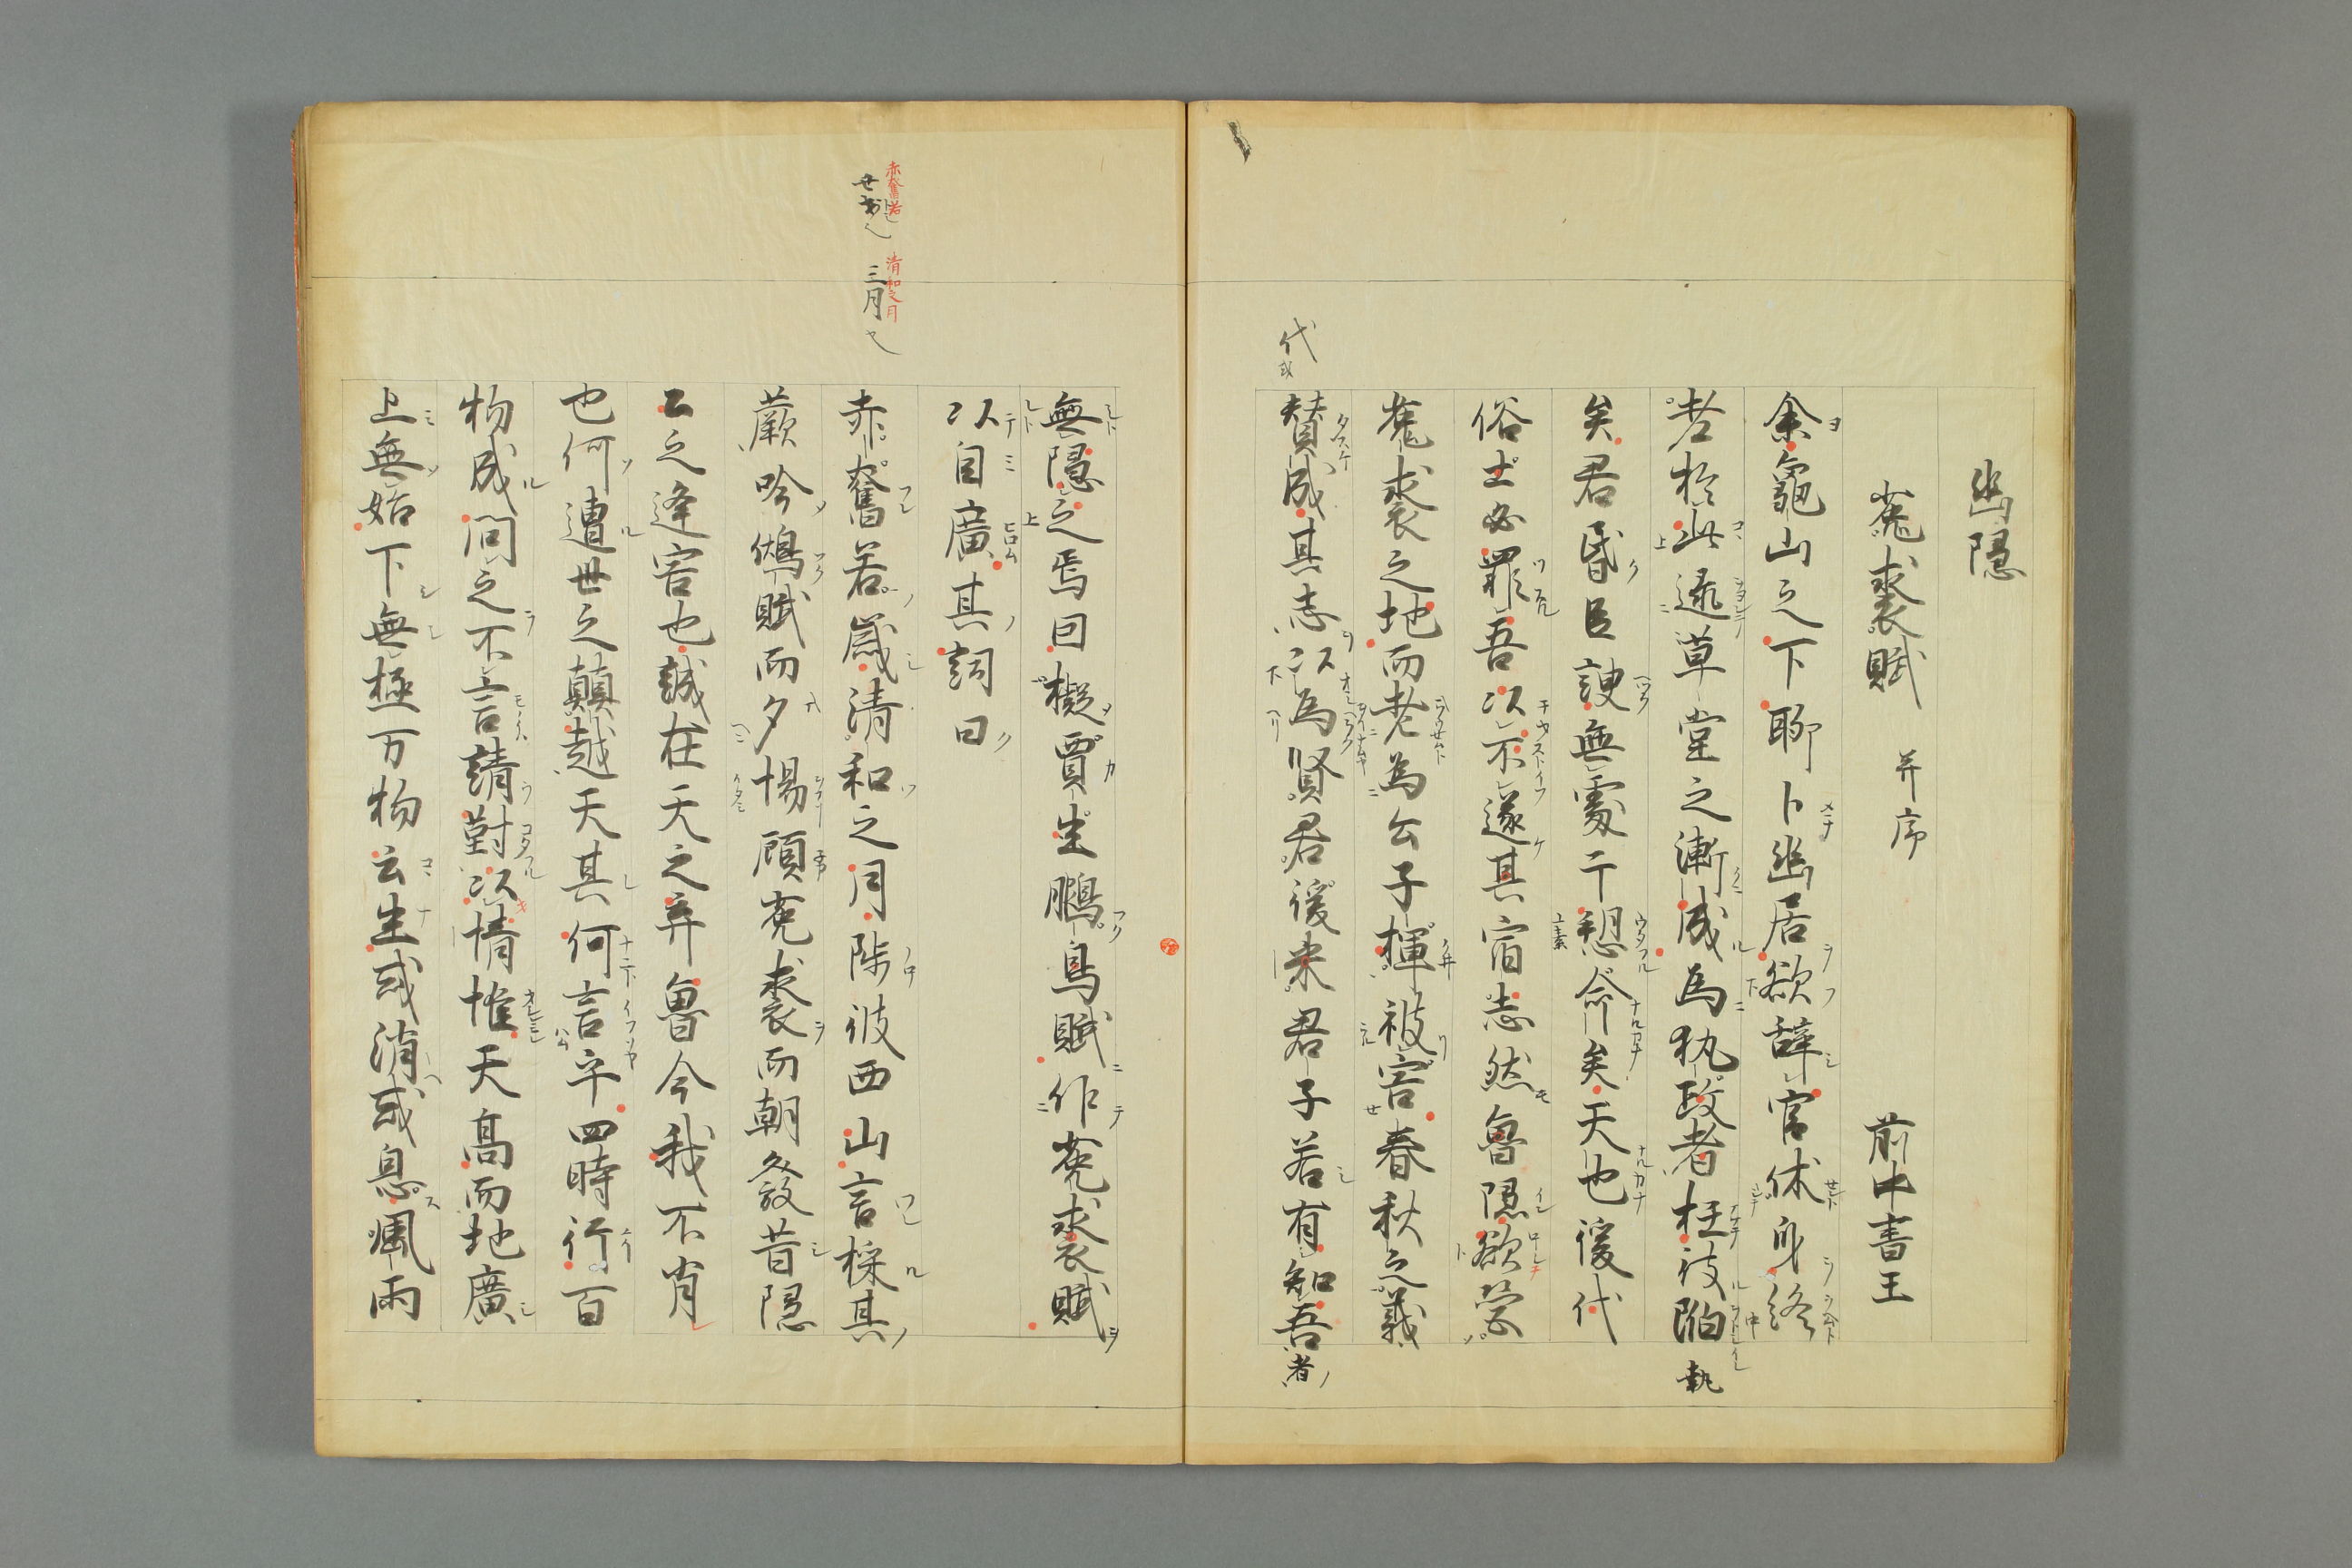 幽隠
菟裘賦 并序 前中書王
余龜山之下聊卜幽居欲辞官休身終
老於此逮草堂之漸成為執政者枉被陥 執
矣君昏臣諛無處于愬命矣天也後代
俗士必罪吾以不遂其宿志然魯隠欲営
菟裘之地而老為公子揮被害春秋之義
代
賛成其志以為賢君後来君子若有知吾者
無隠之焉因擬賈生鵬鳥賦作菟裘賦
以自廣其詞曰
赤奮若 清和之月
三月也
赤奮若歳清和之月陟彼西山言採其
蕨吟鵩賦而夕惕顧菟裘而朝發昔隠
公之逢害也誠在天之弃魯今我不肖
也何遭世之顛越天其何言乎四時行百
物成問之不言請對以情惟天髙而地廣
上無始下無極万物云生或消或息風雨